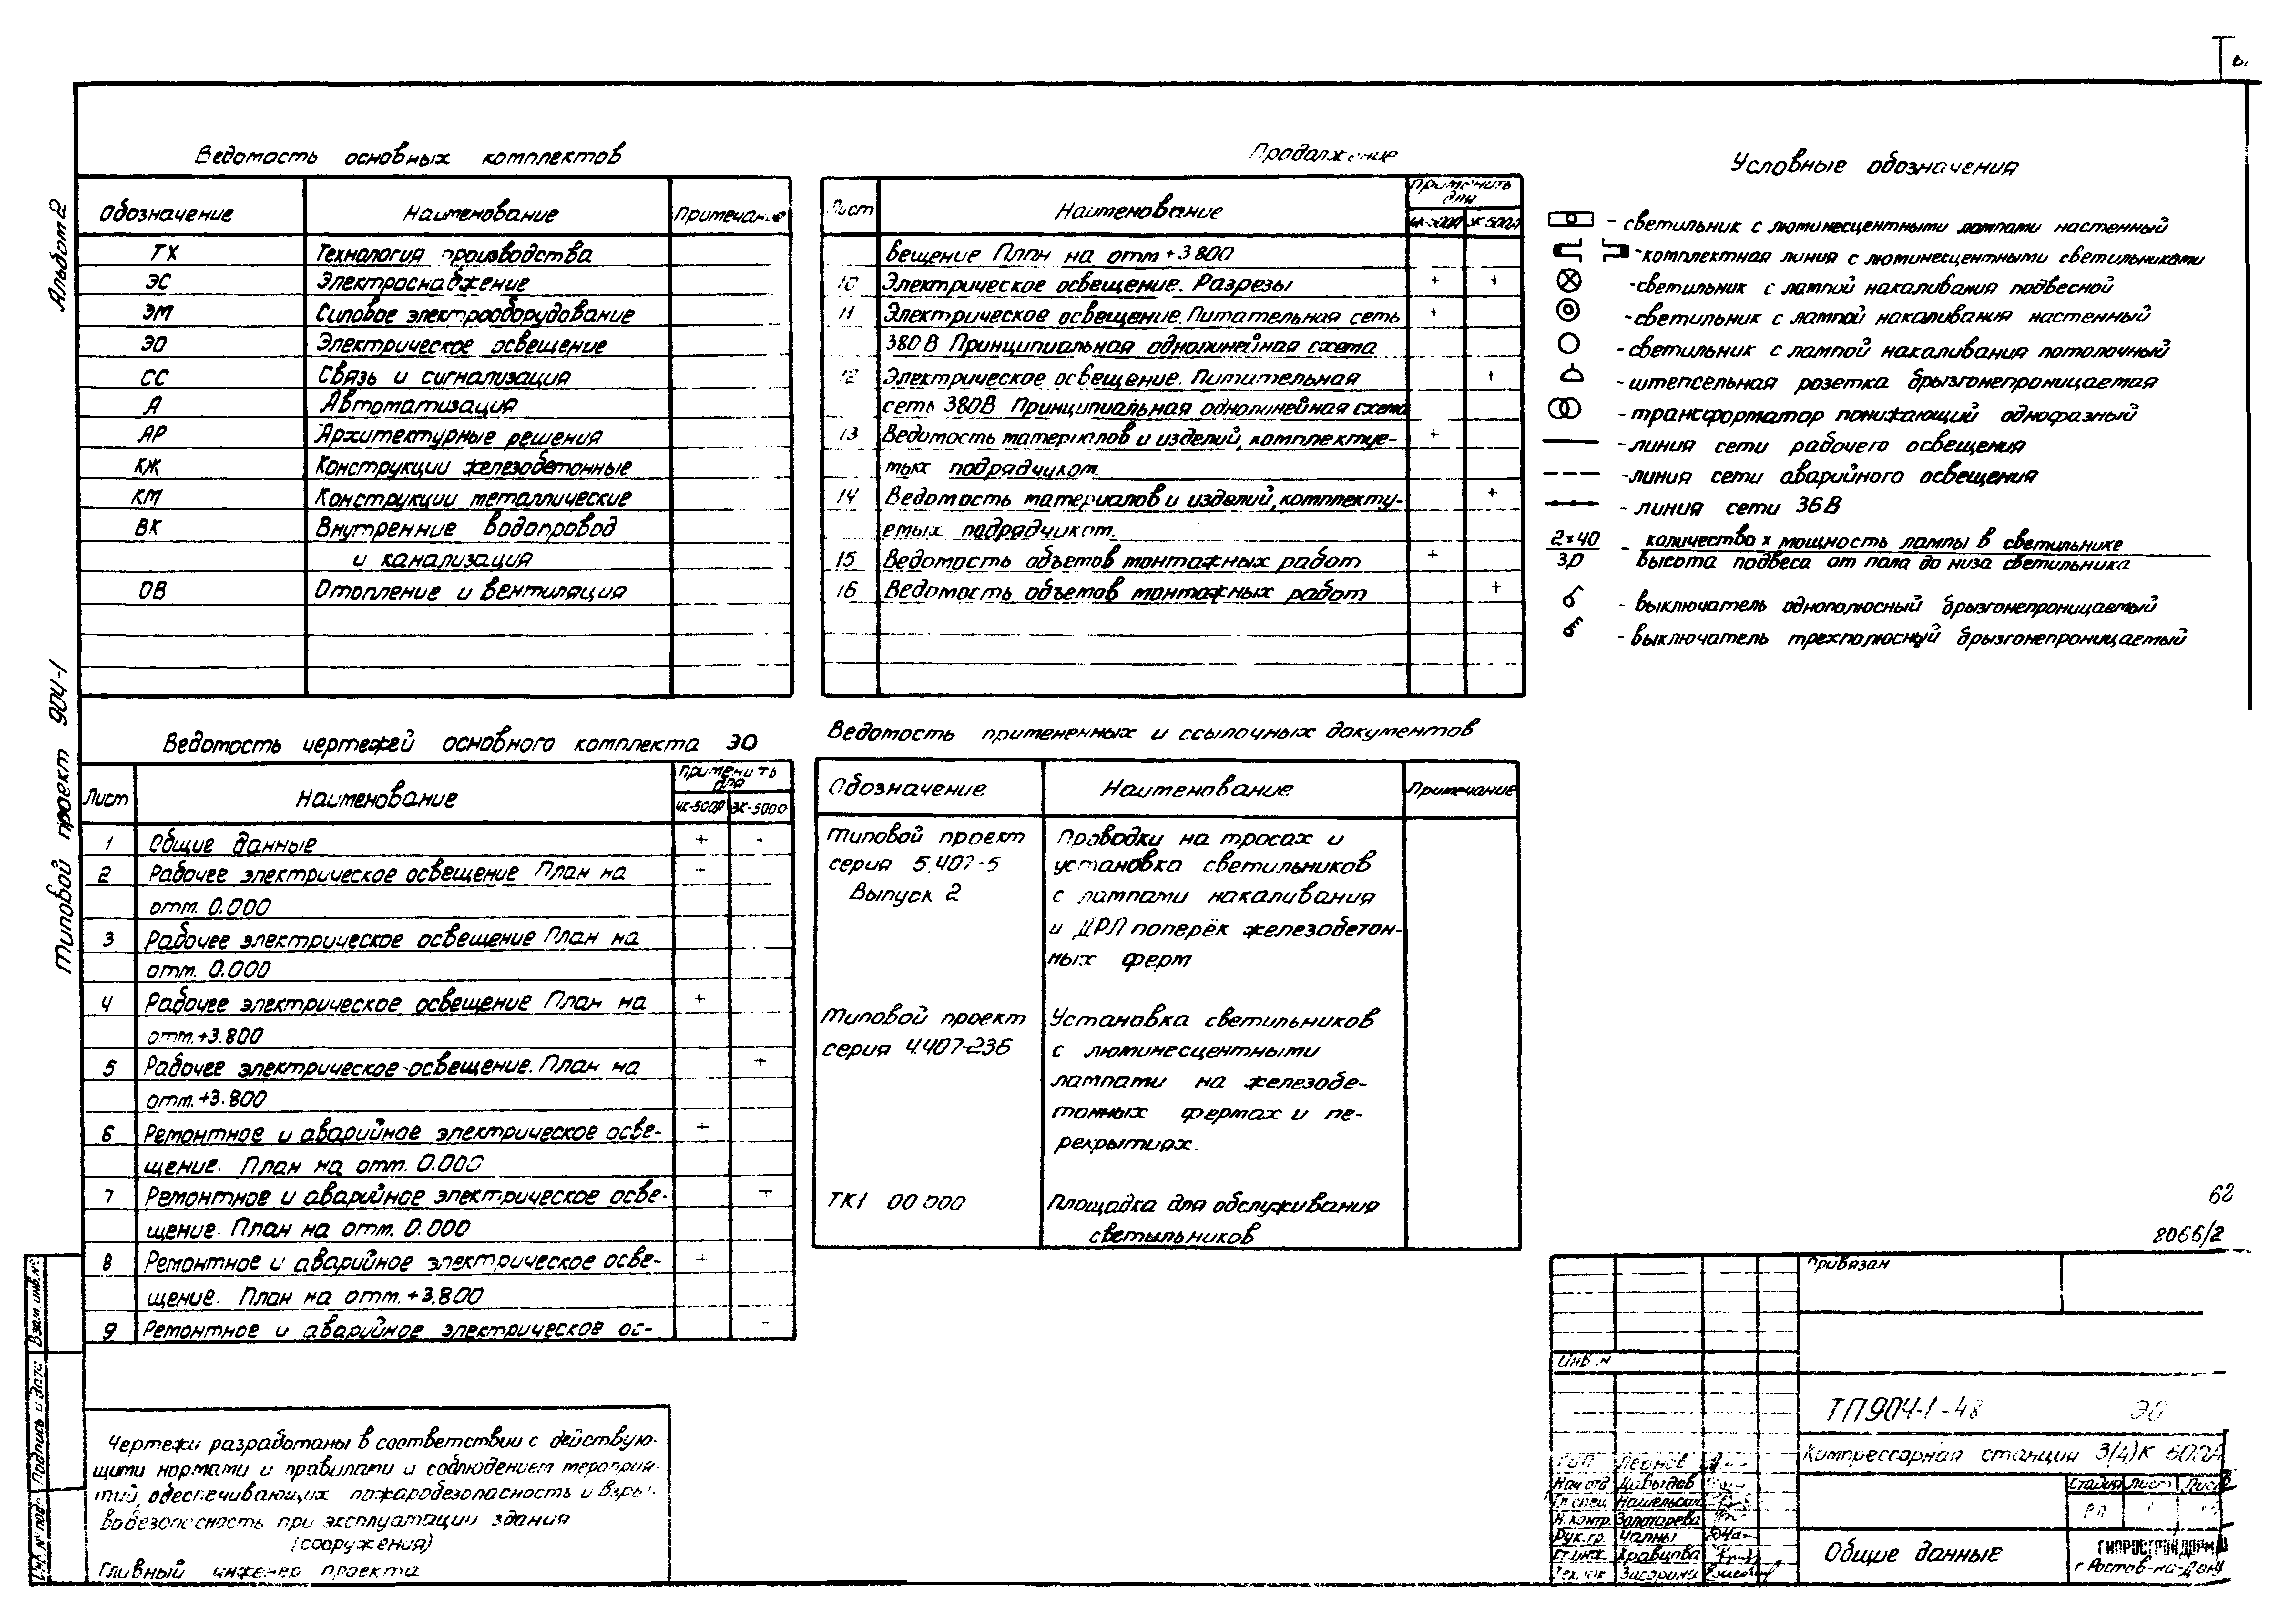 Альбом 2
Типовой проект 904-1
Ведомость основных комплектов
Обозначение Наименование Примечание
ТХ Технология производства
ЭС Электроснабжение
ЭМ Силовое электрооборудование
ЭО Электрическое освещение
СС Связь и сигнализация
А Автоматизация
АР Архитектурные решения
КЖ Конструкции железобетонные
КМ Конструкции металлические
ВК Внутренние водопровод
и канализация
ОВ Отопление и вентиляция
Ведомость чертежей основного комплекта ЭО
Лист Наименование Применить для
4К-500А 3К-500А
1 Общие данные + -
2 Рабочее электрическое освещение План на -
отм. 0.000
3 Рабочее электрическое освещение План на
отм. 0.000
4 Рабочее электрическое освещение План на +
отм.+3.800
5 Рабочее электрическое освещение. План на +
отм.+3.800
6 Ремонтное и аварийное электрическое осве- +
щение. План на отм. 0.000
7 Ремонтное и аварийное электрическое осве- +
щение. План на отм. 0.000
8 Ремонтное и аварийное электрическое осве- +
щение. План на отм.+3,800
9 Ремонтное и аварийное электрическое ос- -
Продолжение
Лист Наименование Применить для
4К-500А 3К-500А
вещение План на отм +3 800
10 Электрическое освещение. Разрезы + +
11 Электрическое освещение. Питательная сеть +
380 В Принципиальная однолинейная схема
12 Электрическое освещение. Питательная +
сеть 380В Принципиальная однолинейная схема
13 Ведомость материалов и изделий, комплектуе- +
мых подрядчиком.
14 Ведомость материалов и изделий, комплекту- +
емых подрядчиком.
15 Ведомость объемов монтажных работ +
16 Ведомость объемов монтажных работ +
Ведомость примененных и ссылочных документов
Обозначение Наименование Примечание
Типовой проект Проводки на тросах и
серия 5.407-5 установка светильников
Выпуск 2 с лампами накаливания
и ДРЛ поперёк железобетон-
ных ферм
Типовой проект Установка светильников
серия 4.407-236 с люминесцентными
лампами на железобе-
тонных фермах и пе-
рекрытиях.
ТК1 00 000 Площадка для обслуживания
светильников
Условные обозначения
- светильник с люминесцентными лампами настенный
- комплектная линия с люминесцентными светильниками
- светильник с лампой накаливания подвесной
- светильник с лампой накаливания настенный
- светильник с лампой накаливания потолочный
- штепсельная розетка брызгонепроницаемая
- трансформатор понижающий однофазный
- линия сети рабочего освещения
- линия сети аварийного освещения
- линия сети 36В
2×40 - количество х мощность лампы в светильнике
3,0 высота подвеса от пола до низа светильника
- выключатель однополюсный брызгонепроницаемый
- выключатель трехполюсный брызгонепроницаемый
Чертежи разработаны в соответствии с действую-
щими нормами и правилами и соблюдением мероприя-
тий, обеспечивающих пожаробезопасность и взры-
вобезопасность при эксплуатации здания
(сооружения)
Главный инженер проекта
Взам. инв.№
Подпись и дата
Инв. № подл.
62
8066/2
Привязан
Инв. №
ТП904-1-48 ЭО
Компрессорная станция 3(4)К 500А
ГИП Леонов
Нач отд Давыдов
Гл.спец
Н.контр. Золотарева
Рук.гр. Чапны
Ст.инж. Кравцова
Техник Засорина
Стадия Лист
РП 1
Общие данные
г Ростов-на-Дону